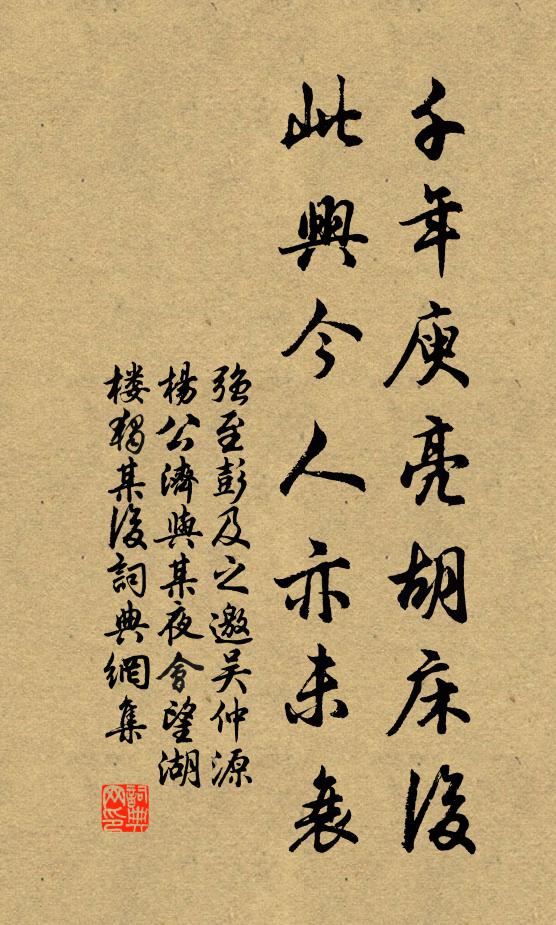 千年庾亮胡床後
此興今人亦未衰
强至彭及之邀吴仲源
楊公濟與某夜會望湖
楼獨某後詞典網集
詞典网印